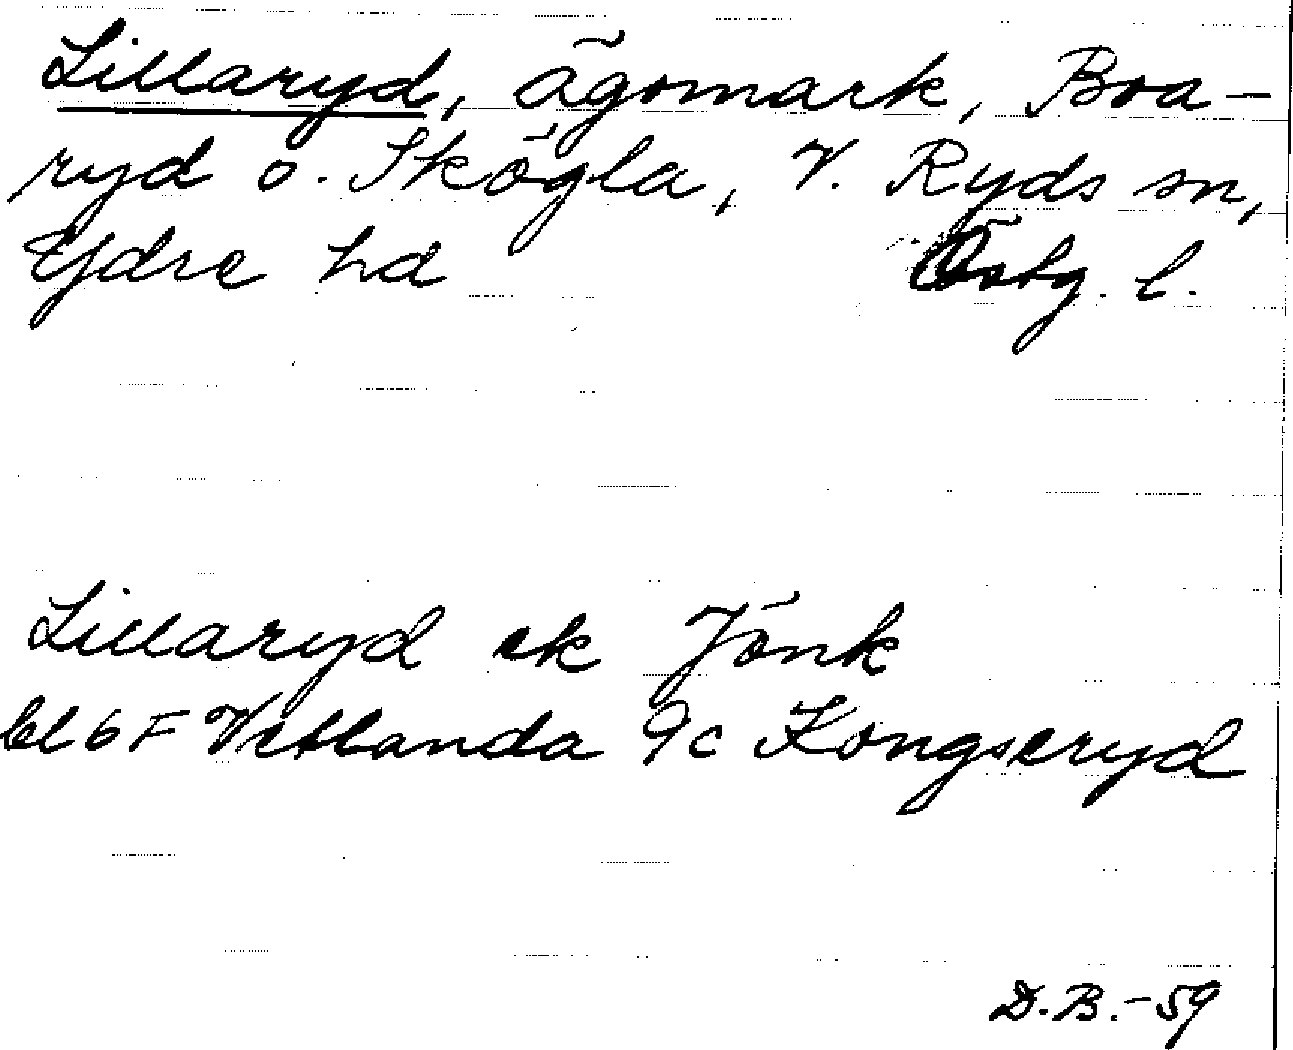 Lillaryd, ägomark, Boa-
ryd o. Skögla, V. Ryds sn,
Ydre hd Östg. l.
Lillaryd ek Jönk
bl 6 F Vetlanda 9c Kongseryd
D.B.-59